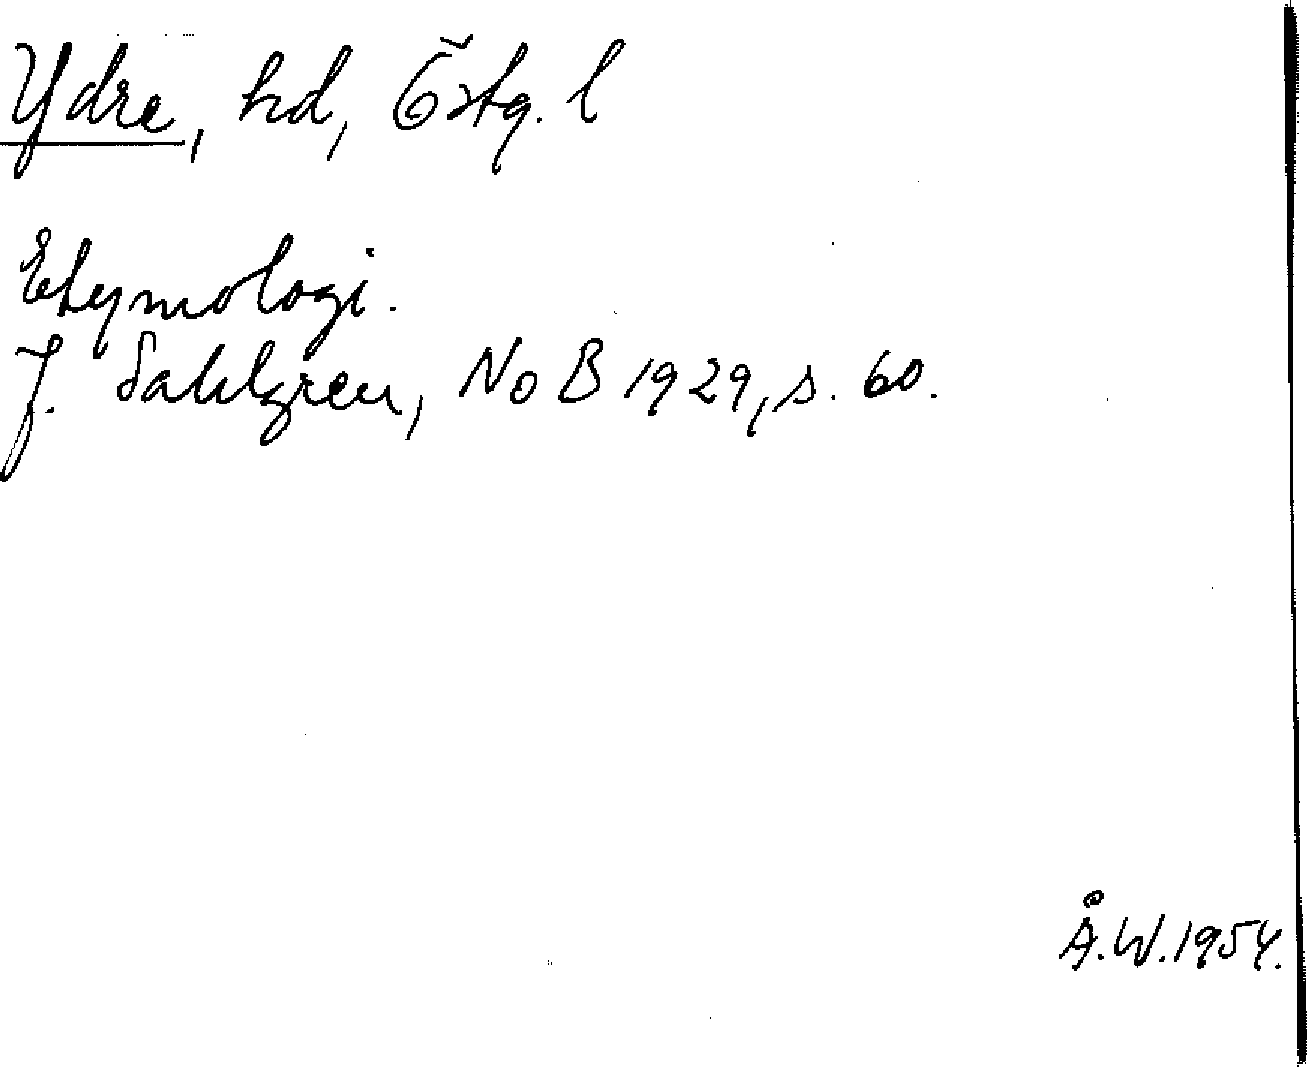 Ydre, hd, Östg. l
Etymologi.
J. Sahlgren, NoB 1929, s. 60.
Å.W. 1954.